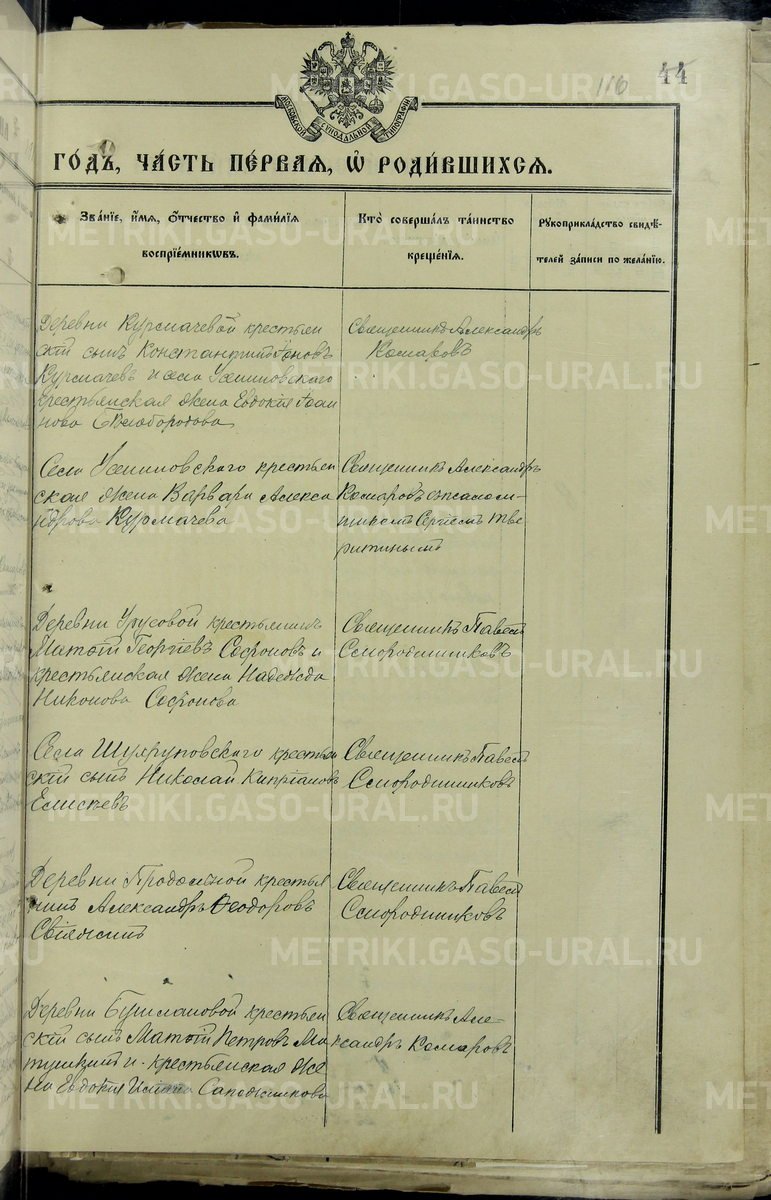 116 44
МОСКОВСКОЙ СѴНОДАЛЬНОЙ ТИПОГРАФІИ
ГО́ДЪ, ЧА́СТЬ ПЕ́РВАЯ, Ѽ РОДИ́ВШИХСЯ.
Зва́нїе, и́мя, ѻ́тчество и҆ фами́лїя
воспрїе́мниковъ.
Кто̀ соверша́лъ та́инство
креще́нїя.
Рукоприкла́дство свидѣ́-
телей за́писи по жела́нїю.
Деревни Курмачевой крестьян
скій сынъ Константинъ
Курмачевъ и села
крестьянская жена Евдокія Іоан
нова Белобородова
Священникъ Александръ
Комаровъ
Села крестьян
ская жена Варвара Алекса
ндрова Курмачева
Священникъ Александръ
Комаровъ съ псалом-
щикомъ Сергіемъ Тве
ритинымъ
Деревни Урусовой крестьянинъ
Матѳій Георгіевъ Софроновъ и
крестьянская жена Надежда
Никонова Софронова
Священникъ Павелъ
Смородинниковъ
Села Шуляруповскаго крестьян
скій сынъ Николай Кипріановъ
Елисѣевъ
Священникъ Павелъ
Смородинниковъ
Деревни крестья
нинъ Александръ Ѳеодоровъ
Священникъ Павелъ
Смородинниковъ
Деревни крестьян
скій сынъ Матѳій Петровъ Ма
и крестьянская же
на Евдокія Сапожникова
Священникъ Але-
ксандръ Комаровъ
METRIKI.GASO-URAL.RU